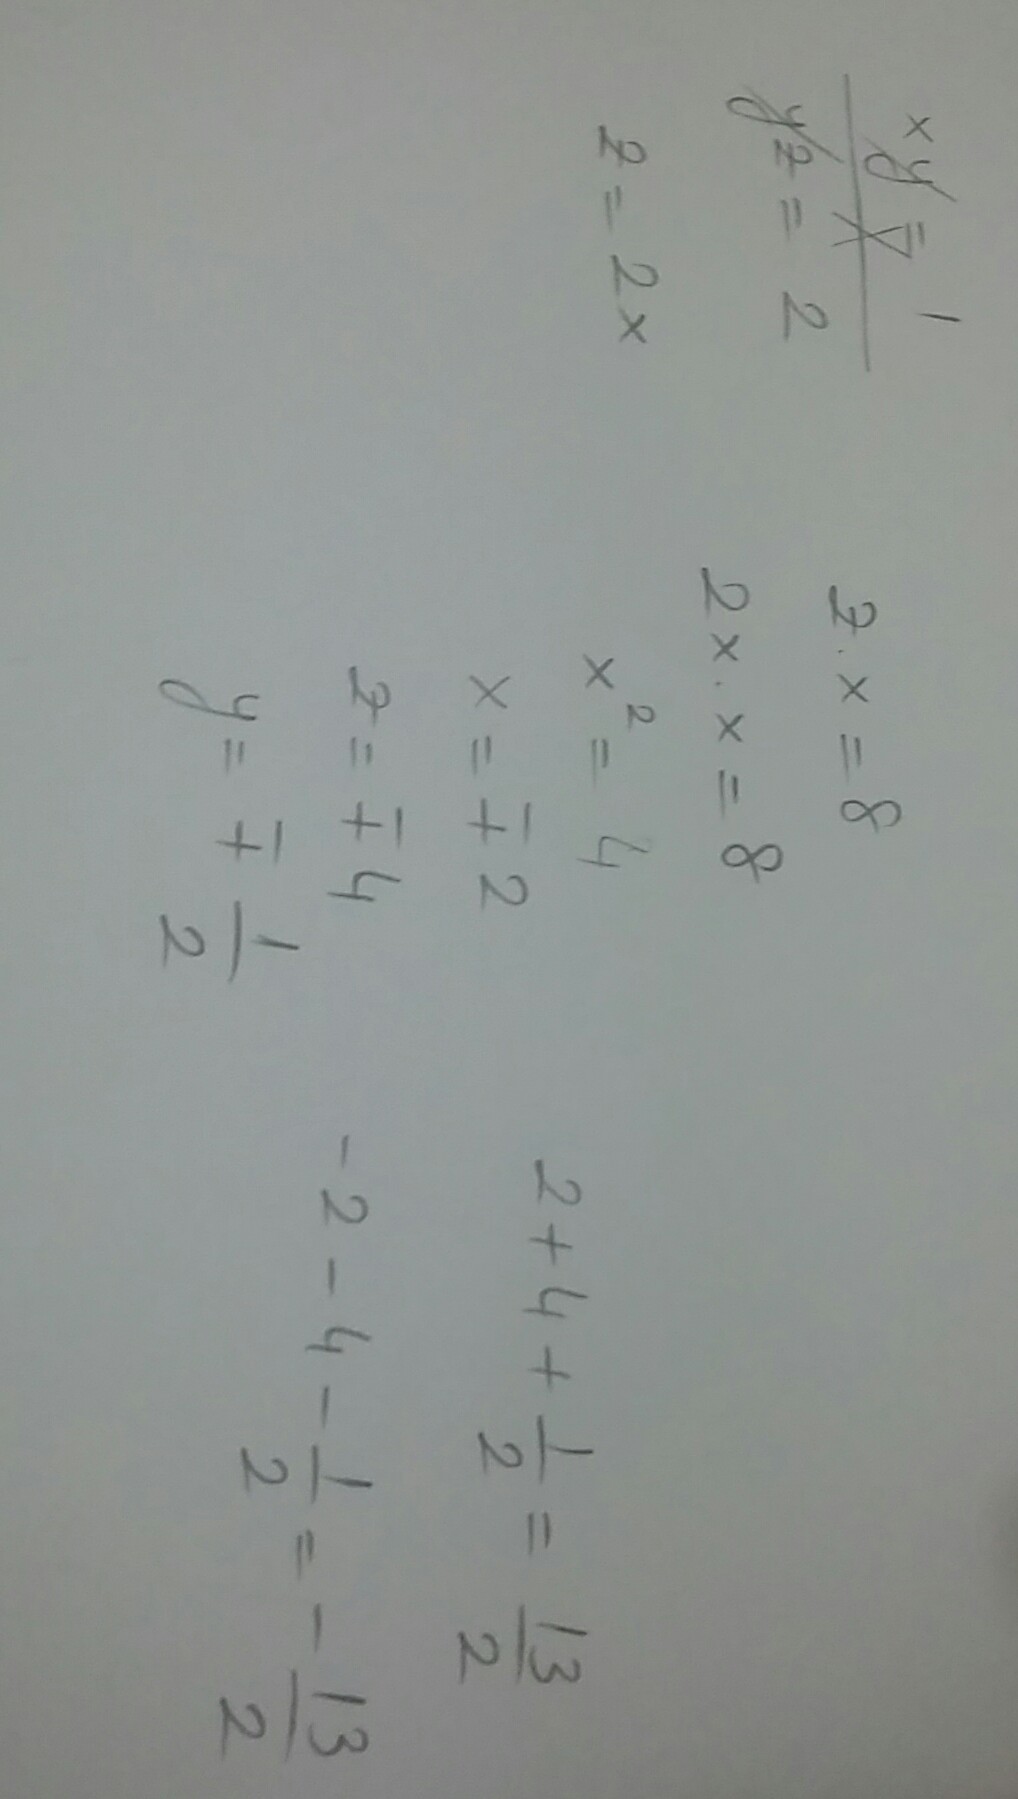 xy = 1
yz = 2
z = 2x
z . x = 8
2x . x = 8
x² = 4
x = ∓ 2
z = ∓ 4
y = ∓ 1/2
2 + 4 + 1/2 = 13/2
- 2 - 4 - 1/2 = - 13/2